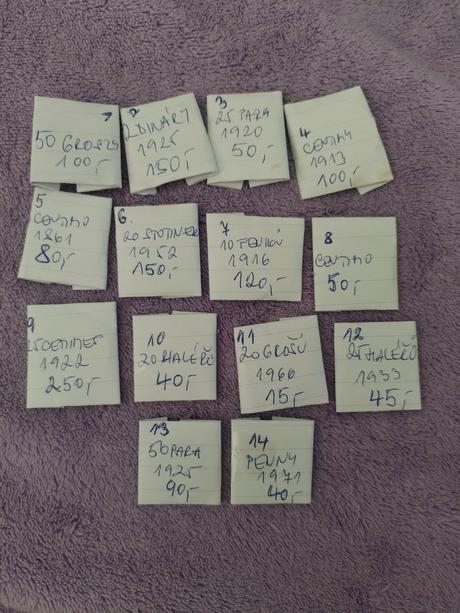 1
50 GROSZY
100,-
2
2 DINÁRY
1925
150,-
3
25 PARA
1920
50,-
4
CENTIMY
1913
100,-
5
CENTIMO
1861
80,-
6.
20 STOTINEK
1952
150,-
7
10 FENIKŮ
1916
120,-
8
CENTIMO
50,-
9
25 CENTIMES
1922
250,-
10
20 HALÉŘŮ
40,-
11
20 GROŠŮ
1966
15,-
12
25 HALÉŘŮ
1933
45,-
13
50 PARA
1925
90,-
14
PENNY
1971
40,-